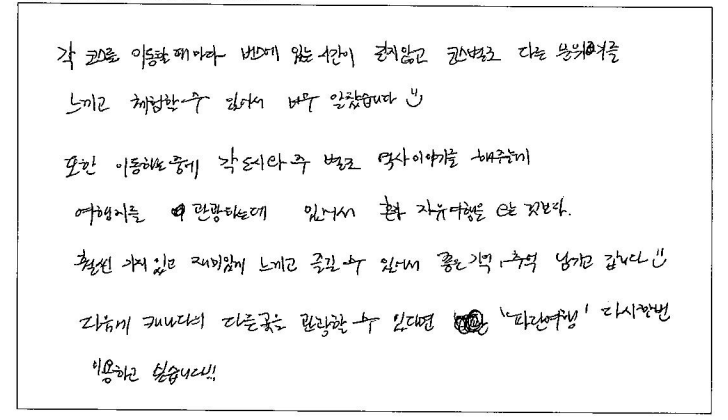 각 코스를 이동할때마다 버스에 있는 시간이 길지않고 코스별로 다른 분위기를
느끼고 체험할 수 있어서 너무 알찼습니다
또한 이동하는 중에 각 도시와 주 별로 역사이야기를 해주는데
여행지를 관광하는데 있어서 자유여행을 하는 것보다.
훨씬 가치 있고 재미있게 느끼고 즐길 수 있어서 좋은 기억, 추억 남기고 갑니다
다음에 캐나다의 다른곳을 관광할 수 있다면 '파란여행' 다시한번
이용하고 싶습니다!!